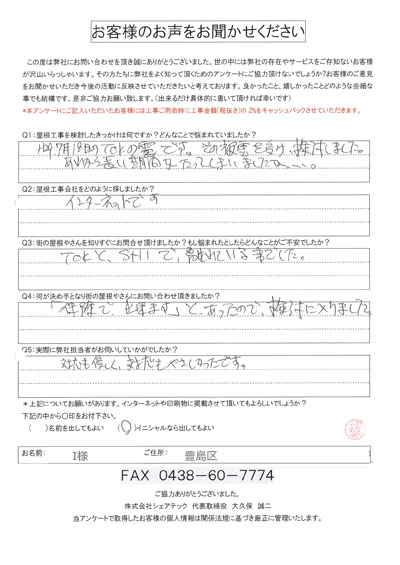 お客様のお声をお聞かせください
この度は弊社にお問い合わせを頂き誠にありがとうございました。世の中には弊社の存在やサービスをご存知ないお客様
が沢山いらっしゃいます。その方たちに弊社をよく知って頂くためのアンケートにご協力頂けないでしょうか?お客様のご意見
をお聞かせいただき今後の活動に反映させていただきたいと考えております。良かったこと、嬉しかったことどのような些細な
事でも結構です。是非ご協力お願い致します。(出来るだけ具体的に書いて頂ければ幸いです)
*本アンケートにご記入いただいたお客様には工事ご用命時に工事金額(税抜き)の2%をキャッシュバックさせていただきます。
Q1:屋根工事を検討したきっかけは何ですか?どんなことで悩まれていましたか?
です。その被害を受け、検討しました。
あれから長い期間たってしまいました
Q2:屋根工事会社をどのように探しましたか?
インターネットです
Q3:街の屋根やさんを知りすぐにお問合せ頂けましたか?もし悩まれたとしたらどんなことがご不安でしたか?
でした。
Q4:何が決め手となり街の屋根やさんにお問い合わせ頂きましたか?
「保険で、出来ます」と、あったので、検討に入りました
Q5:実際に弊社担当者がお伺いしていかがでしたか?
対応もやさしかったです。
*上記についてお願いがあります。インターネットや印刷物に掲載させて頂いてもよろしいでしょうか?
下記の中から〇印をお付下さい。
( )名前を出してもよい (〇)イニシャルなら出してもよい
お名前: I様 ご住所: 豊島区
FAX 0438-60-7774
ご協力ありがとうございました。
株式会社シェアテック 代表取締役 大久保 誠二
当アンケートで取得したお客様の個人情報は関係法規に基づき厳正に管理いたします。